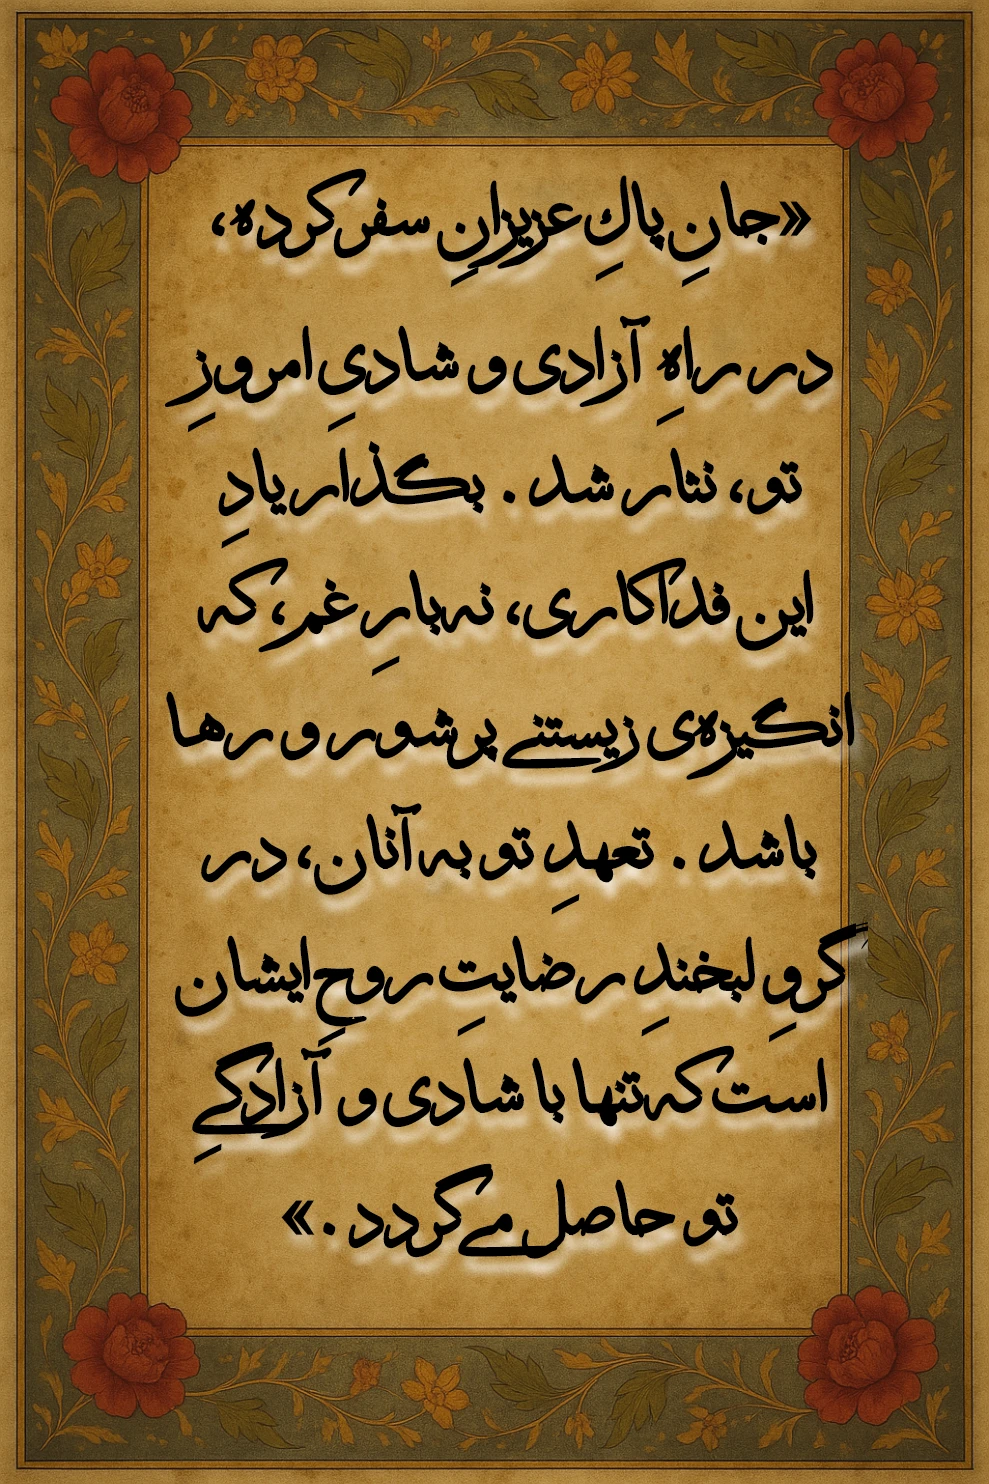 «جانِ پاكِ عزیزانِ سفر کرده،
در راهِ آزادی و شادیِ امروزِ
تو، نثار شد. بگذار یادِ
این فداکاری، نه بارِ غم، که
انگیزه‌ی زیستنی پرشور و رها
باشد. تعهدِ تو به آنان، در
گروِ لبخندِ رضایتِ روحِ ایشان
است که تنها با شادی و آزادگیِ
تو حاصل می‌گردد.»